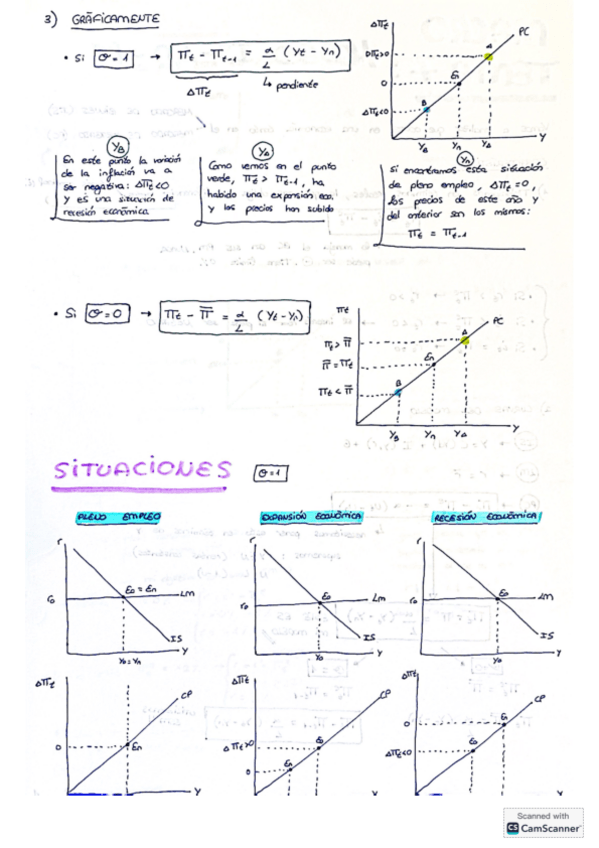 3) GRÁFICAMENTE
• Si θ=1 → πt - πt-1 = α/L (Yt - Yn)
Δπt
↳ pendiente
Δπt
PC
Δπt>0
A
0
En
Δπt<0
B
YB Yn YA Y
YB
En este punto la variació
de la inflación va a
ser negativa: Δπt<0
Y es una situación de
recesión económica.
YA
Como vemos en el punto
verde, πt > πt-1, ha
habido una expansión eco.
y los precios han subido
Yn
Si encontramos esta situación
de pleno empleo, Δπt=0,
los precios de este año y
del anterior son los mismos:
πt = πt-1
• Si θ=0 → πt - π̅ = α/L (Yt - Yn)
πt
PC
πt > π̅
A
π̅ = πt
En
πt < π̅
B
YB Yn YA Y
SITUACIONES θ=1
PLENO EMPLEO
EXPANSIÓN ECONÓMICA
RECESIÓN ECONÓMICA
r
r0
E0 = En
LM
IS
Y0 = Yn
Y
r
r0
E0
LM
IS
Y0
Y
r
r0
E0
LM
IS
Y0
Y
Δπt
CP
0
En
Y
Δπt
CP
Δπt>0
E0
0
En
Y
Δπt
CP
0
En
Δπt<0
E0
Y
Scanned with
CS CamScanner